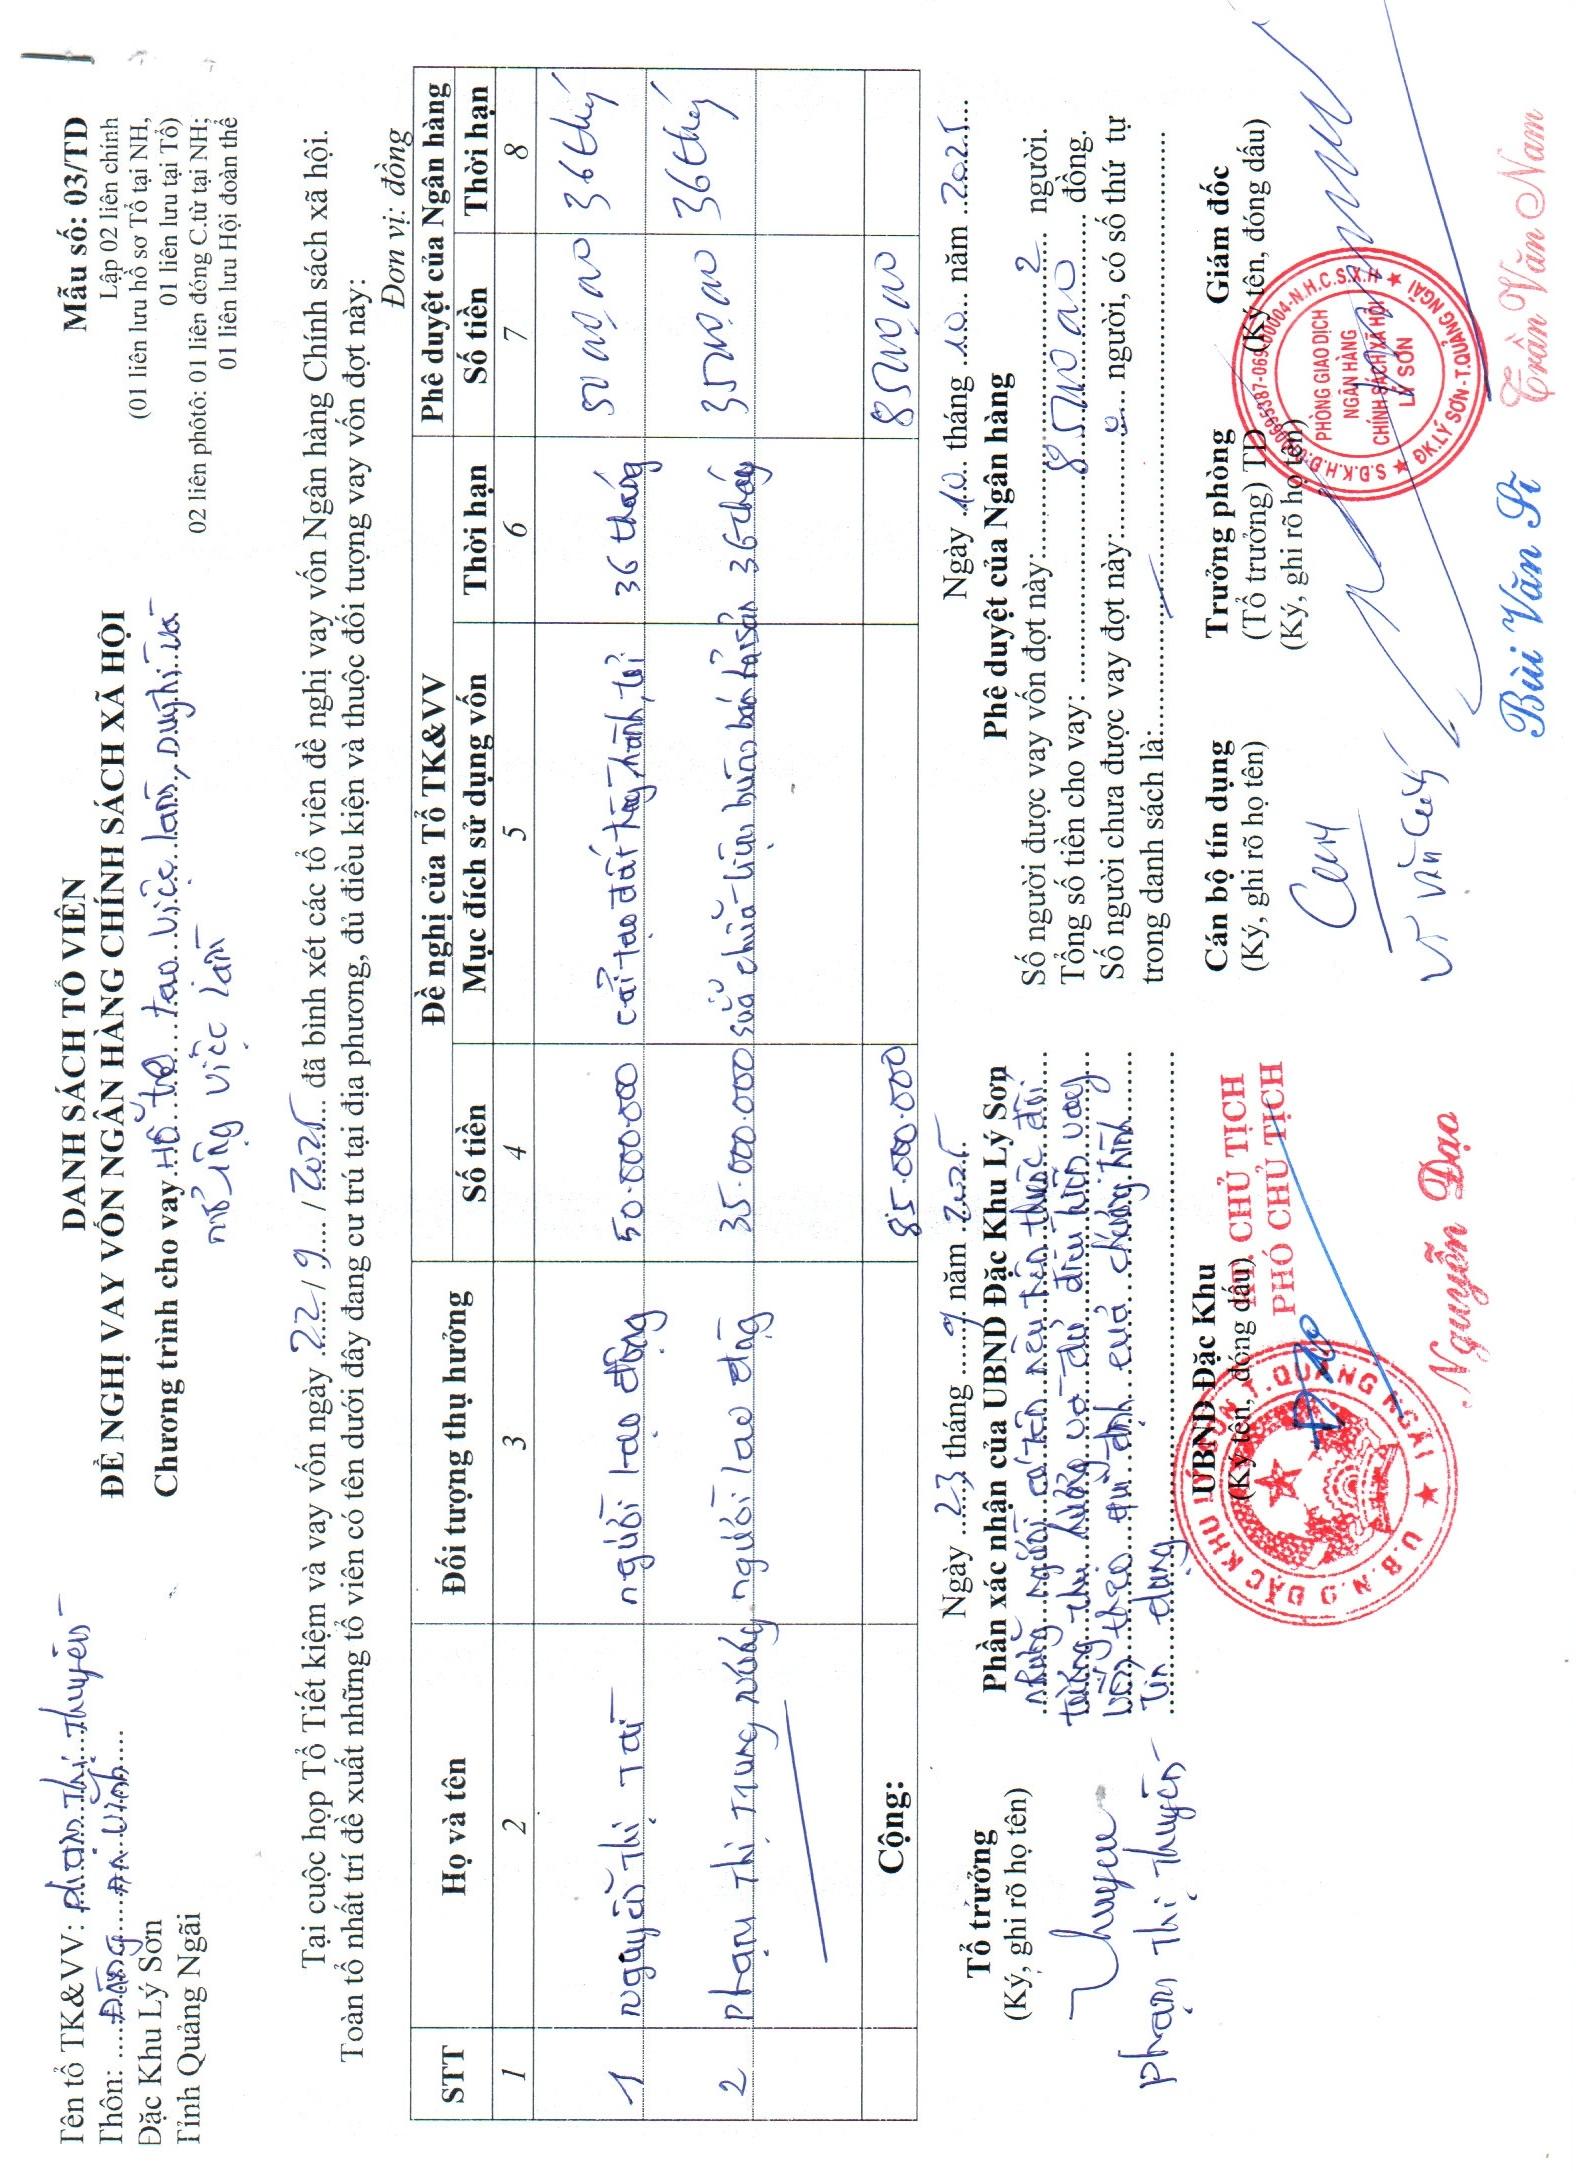 Tên tổ TK&VV: Phạm Thị Thuyền
Thôn: Đông An Vĩnh
Đặc Khu Lý Sơn
Tỉnh Quảng Ngãi
DANH SÁCH TỔ VIÊN
ĐỀ NGHỊ VAY VỐN NGÂN HÀNG CHÍNH SÁCH XÃ HỘI
Chương trình cho vay Hỗ trợ tạo việc làm, duy trì và
mở rộng việc làm
Mẫu số: 03/TD
Lập 02 liên chính
(01 liên lưu hồ sơ Tổ tại NH,
01 liên lưu tại Tổ)
02 liên phôtô: 01 liên đóng C.từ tại NH;
01 liên lưu Hội đoàn thể
Tại cuộc họp Tổ Tiết kiệm và vay vốn ngày 22/9/2025 đã bình xét các tổ viên đề nghị vay vốn Ngân hàng Chính sách xã hội.
Toàn tổ nhất trí đề xuất những tổ viên có tên dưới đây đang cư trú tại địa phương, đủ điều kiện và thuộc đối tượng vay vốn đợt này:
Đơn vị: đồng
STT Họ và tên Đối tượng thụ hưởng Đề nghị của Tổ TK&VV Phê duyệt của Ngân hàng
Số tiền Mục đích sử dụng vốn Thời hạn Số tiền Thời hạn
1 2 3 4 5 6 7 8
1 Nguyễn Thị Tài người lao động 50.000.000 cải tạo đất trồng hành, tỏi 36 tháng 36 tháng
2 Phạm Thị Trung người lao động 35.000.000 sửa chữa buôn bán hải sản 36 tháng 36 tháng
Cộng: 85.000.000
Tổ trưởng
(Ký, ghi rõ họ tên)
Thuyen
Phạm Thị Thuyền
Ngày 23 tháng 9 năm 2025
Phần xác nhận của UBND Đặc Khu Lý Sơn
Những người có tên nêu trên thuộc đối
tượng thụ hưởng và đủ điều kiện vay
vốn theo qui định của chương trình
tín dụng
UBND Đặc Khu
(Ký tên, đóng dấu)
KT. CHỦ TỊCH
PHÓ CHỦ TỊCH
U.B.N.D ĐẶC KHU LÝ SƠN.T.QUẢNG NGÃI
Nguyễn Đạo
Ngày 10 tháng 10 năm 2025
Phê duyệt của Ngân hàng
Số người được vay vốn đợt này: 2 người.
Tổng số tiền cho vay: đồng.
Số người chưa được vay đợt này: 0 người, có số thứ tự
trong danh sách là
Cán bộ tín dụng
(Ký, ghi rõ họ tên)
Trưởng phòng
(Tổ trưởng) TD
(Ký, ghi rõ họ tên)
Bùi Văn Sĩ
Giám đốc
(Ký tên, đóng dấu)
PHÒNG GIAO DỊCH
NGÂN HÀNG
CHÍNH SÁCH XÃ HỘI
LÝ SƠN
ĐK.LÝ SƠN-T.QUẢNG NGÃI
Trần Văn Nam